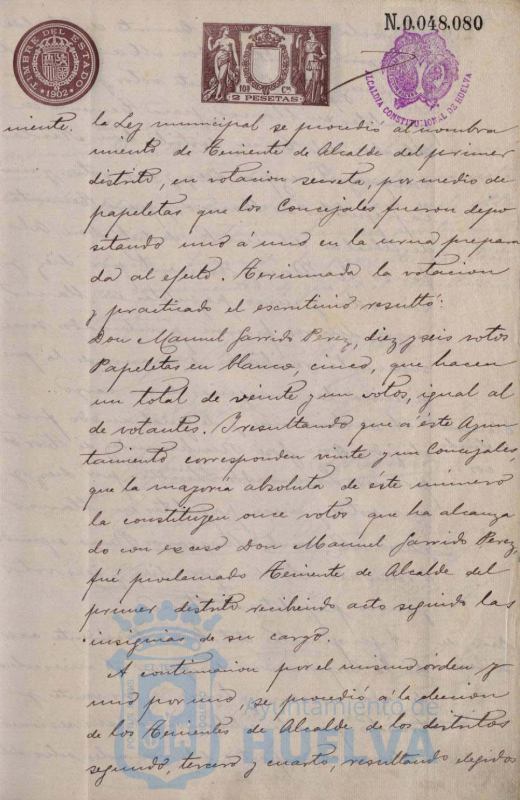 N.0,048,080
TIMBRE DEL ESTADO
1902
100 Cs
2 PESETAS
ALCALDIA CONSTITUCIONAL DE HUELVA
miento. la Ley municipal se procedió al nombra
miento de Teniente de Alcalde del primer
distrito, en votacion secreta, por medio de
papeletas que los Concejales fueron depo
sitando uno á uno en la urna prepara
da al efecto. Terminada la votacion
y practicado el escrutinio resultó:
Don Manuel Garrido Perez, diez y seis votos
Papeletas en blanco, cinco, que hacen
un total de veinte y un votos, igual al
de votantes. Y resultando que á éste Ayun
tamiento corresponden veinte y un Concejales,
que la mayoría absoluta de éste número
la constituyen once votos que ha alcanza
do con exceso Don Manuel Garrido Perez,
fué proclamado Teniente de Alcalde del
primer distrito recibiendo acto seguido las
insignias de su cargo.
A continuacion por el mismo órden y
uno por uno se procedió á la eleccion
de los Tenientes de Alcalde de los distritos
segundo, tercero y cuarto, resultando elegidos
Ayuntamiento de
HUELVA